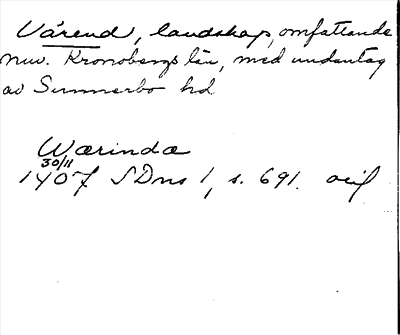 Värend, landskap, omfattande
nuv. Kronobergs län, med undantag
av Sunnerbo hd
Wærindæ
30/11
1407 SDns 1, s. 691. orig